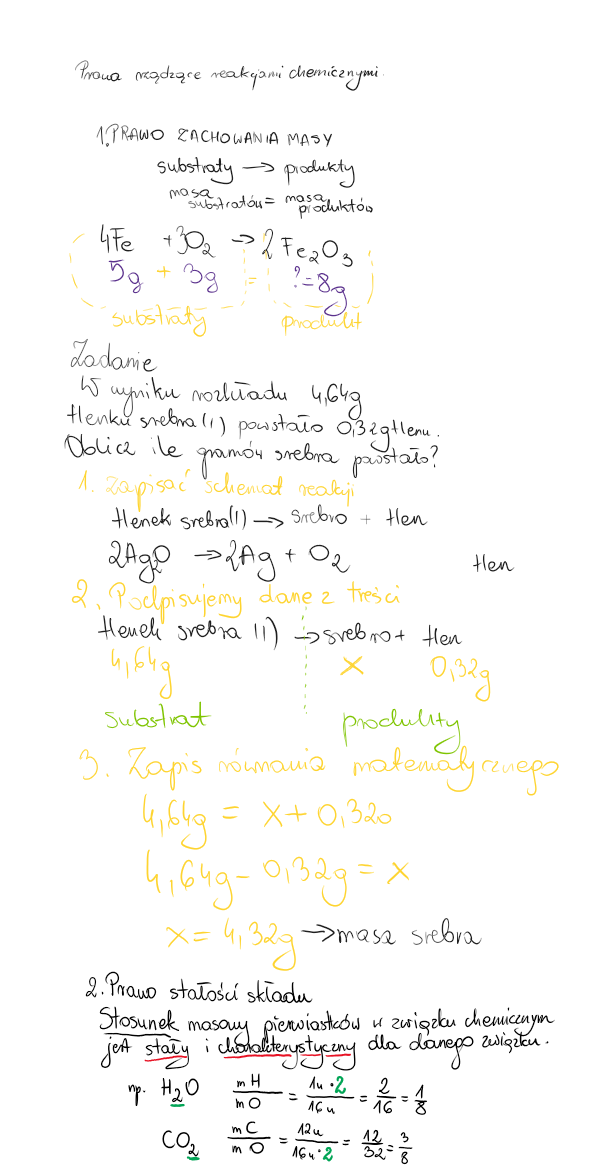 Prawa rządzące reakcjami chemicznymi.
1. PRAWO ZACHOWANIA MASY
substraty → produkty
masa substratów = masa produktów
4Fe + 3O₂ → 2Fe₂O₃
5g + 3g = ?=8g
substraty produkt
Zadanie
W wyniku rozkładu 4,64g
tlenku srebra (I) powstało 0,32g tlenu.
Oblicz ile gramów srebra powstało?
1. Zapisać schemat reakcji
tlenek srebra(I) → srebro + tlen
2Ag₂O → 2Ag + O₂ tlen
2. Podpisujemy dane z treści
tlenek srebra (I) → srebro + tlen
4,64g x 0,32g
substrat produkty
3. Zapis równania matematycznego
4,64g = x + 0,32g
4,64g - 0,32g = x
x = 4,32g → masa srebra
2. Prawo stałości składu
Stosunek masowy pierwiastków w związku chemicznym
jest stały i charakterystyczny dla danego związku.
np. H₂O mH/mO = 1u·2/16u = 2/16 = 1/8
CO₂ mC/mO = 12u/16u·2 = 12/32 = 3/8